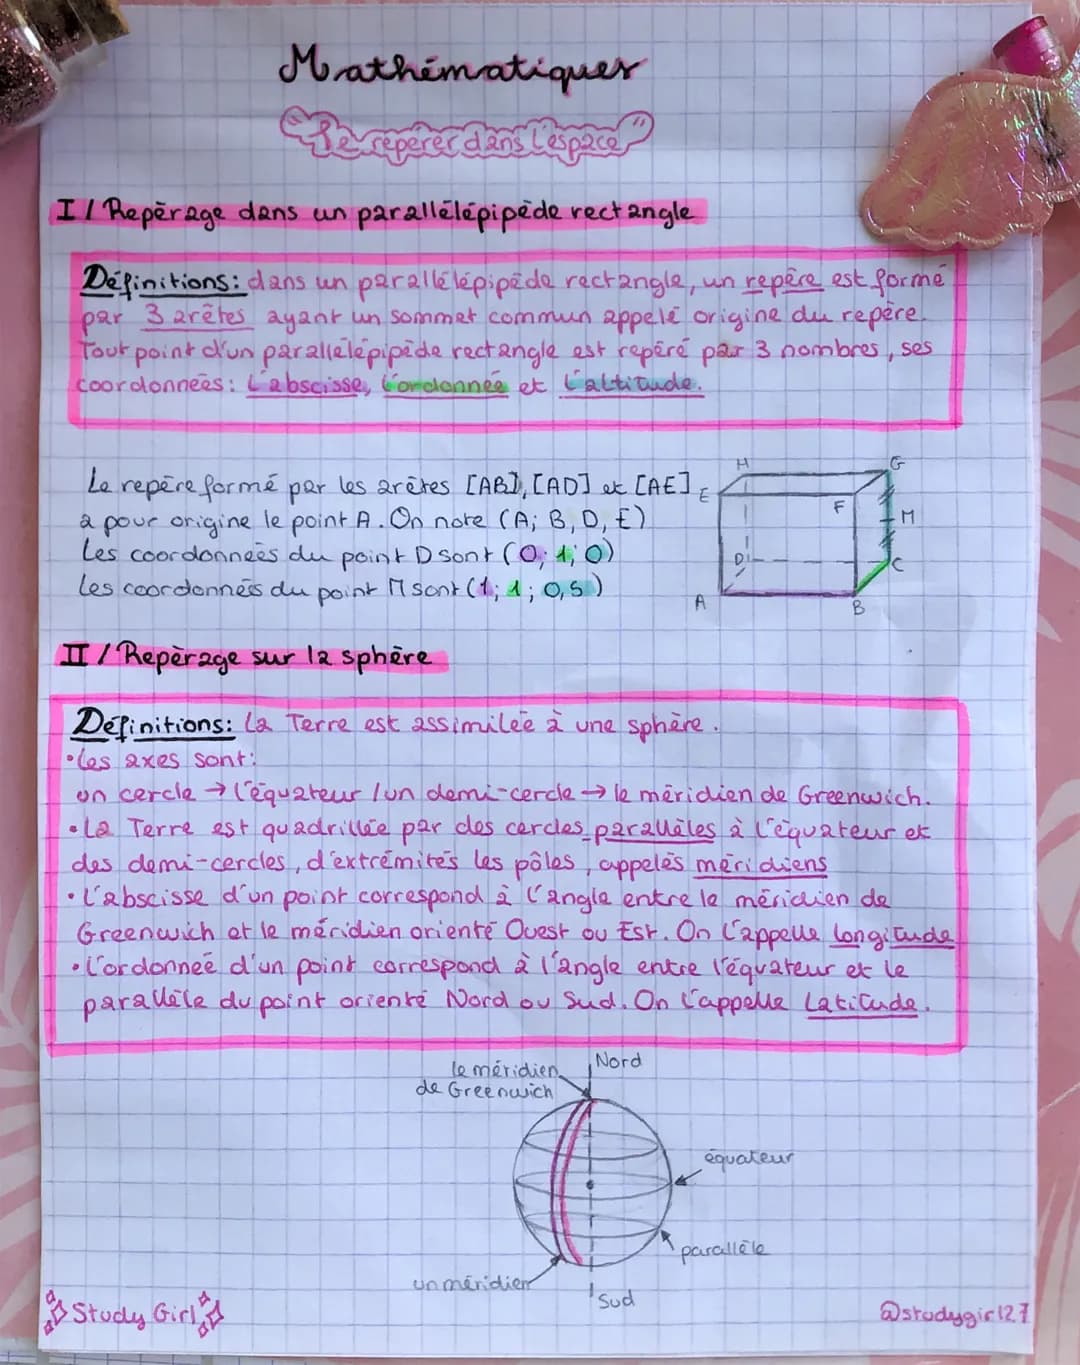 Mathématiques
"Se repérer dans l'espace"
I / Repérage dans un parallélépipède rectangle
Définitions: dans un parallélépipède rectangle, un repère est formé
par 3 arêtes ayant un sommet commun appelé origine du repère.
Tout point d'un parallélépipède rectangle est repéré par 3 nombres, ses
coordonnées: L'abscisse, l'ordonnée et l'altitude.
Le repère formé par les arêtes [AB], [AD] et [AE]
a pour origine le point A. On note (A; B, D, E)
Les coordonnées du point D sont (0; 1; 0)
Les coordonnées du point M sont (1; 1; 0,5)
H
G
E
F
M
D
C
A
B
II / Repérage sur la sphère
Définitions: La Terre est assimilée à une sphère.
•Les axes sont:
un cercle → l'équateur / un demi-cercle → le méridien de Greenwich.
•La Terre est quadrillée par des cercles parallèles à l'équateur et
des demi-cercles, d'extrémités les pôles, appelés méridiens
•L'abscisse d'un point correspond à l'angle entre le méridien de
Greenwich et le méridien orienté Ouest ou Est. On l'appelle Longitude
•L'ordonnée d'un point correspond à l'angle entre l'équateur et le
parallèle du point orienté Nord ou Sud. On l'appelle Latitude.
le méridien
de Greenwich
Nord
équateur
parallèle
un méridien
Sud
Study Girl
@studygirl127